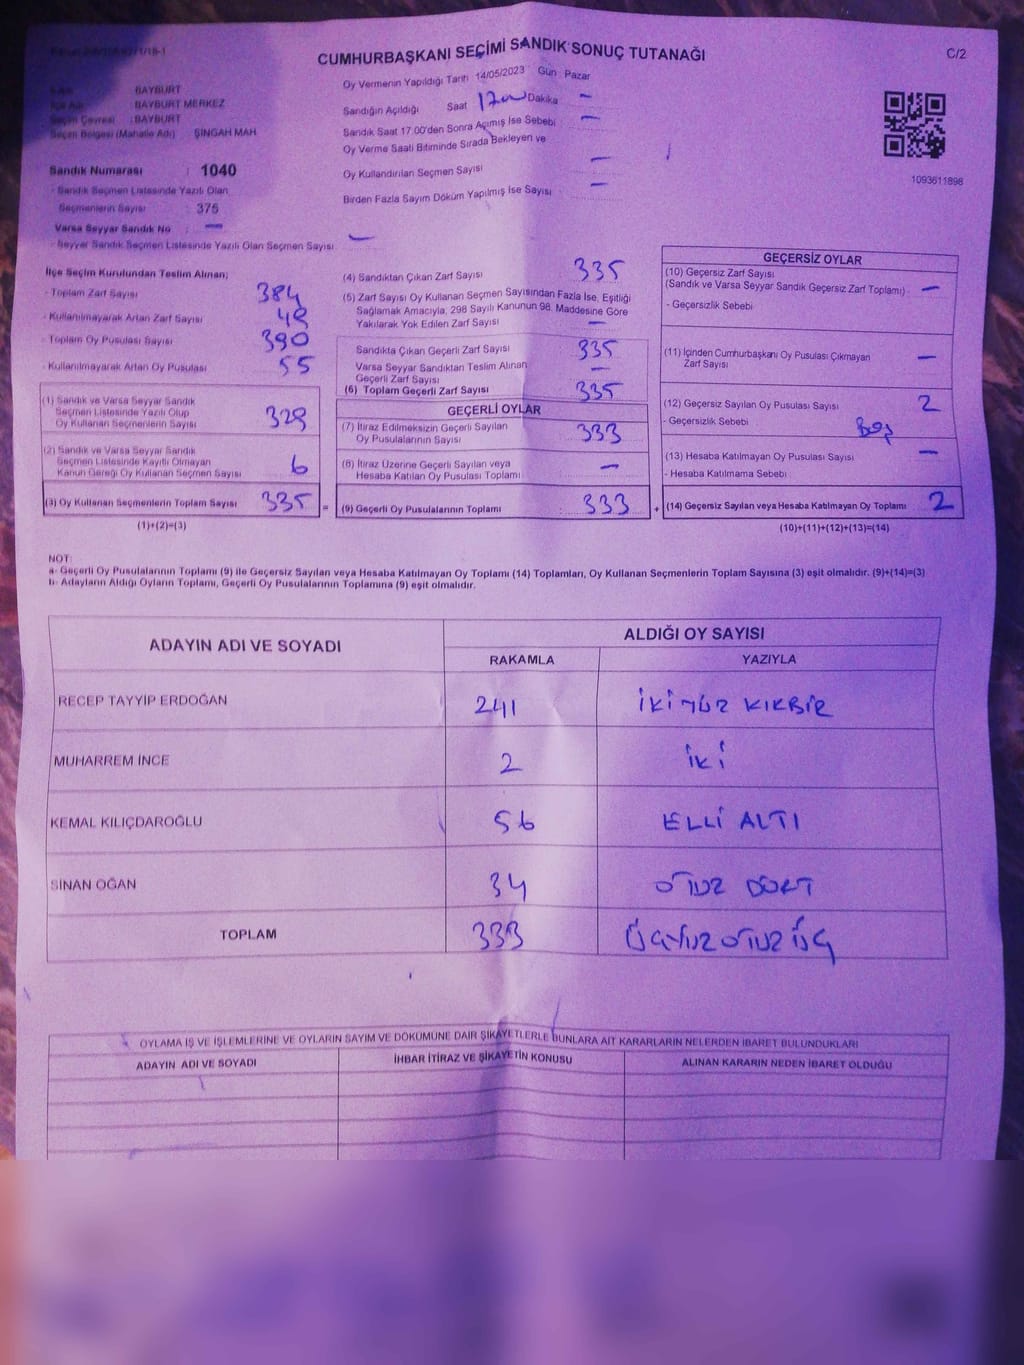 CUMHURBAŞKANI SEÇİMİ SANDIK SONUÇ TUTANAĞI
C/2
BAYBURT
BAYBURT MERKEZ
Seçim Çevresi : BAYBURT
Seçim Bölgesi (Mahalle Adı) ŞINGAH MAH
Sandık Numarası : 1040
- Sandık Seçmen Listesinde Yazılı Olan
Seçmenlerin Sayısı : 375
Varsa Seyyar Sandık No : —
- Seyyar Sandık Seçmen Listesinde Yazılı Olan Seçmen Sayısı : —
Oy Vermenin Yapıldığı Tarih 14/05/2023 Gün : Pazar
Sandığın Açıldığı Saat 1700 Dakika —
Sandık Saat 17.00'den Sonra Açımış İse Sebebi : —
Oy Verme Saati Bitiminde Sırada Bekleyen ve
Oy Kullandırılan Seçmen Sayısı —
Birden Fazla Sayım Döküm Yapılmış İse Sayısı —
1093611898
İlçe Seçim Kurulundan Teslim Alınan;
- Toplam Zarf Sayısı 384
- Kullanılmayarak Artan Zarf Sayısı
- Toplam Oy Pusulası Sayısı 390
- Kullanılmayarak Artan Oy Pusulası 55
(1) Sandık ve Varsa Seyyar Sandık
Seçmen Listesinde Yazılı Olup
Oy Kullanan Seçmenlerin Sayısı 329
(2) Sandık ve Varsa Seyyar Sandık
Seçmen Listesinde Kayıtlı Olmayan
Kanun Gereği Oy Kullanan Seçmen Sayısı 6
(3) Oy Kullanan Seçmenlerin Toplam Sayısı 335
(1)+(2)=(3)
(4) Sandıktan Çıkan Zarf Sayısı 335
(5) Zarf Sayısı Oy Kullanan Seçmen Sayısından Fazla İse, Eşitliği
Sağlamak Amacıyla, 298 Sayılı Kanunun 98. Maddesine Göre
Yakılarak Yok Edilen Zarf Sayısı —
Sandıkta Çıkan Geçerli Zarf Sayısı 335
Varsa Seyyar Sandıktan Teslim Alınan
Geçerli Zarf Sayısı —
(6) Toplam Geçerli Zarf Sayısı 335
GEÇERLİ OYLAR
(7) İtiraz Edilmeksizin Geçerli Sayılan
Oy Pusulalarının Sayısı : 333
(8) İtiraz Üzerine Geçerli Sayılan veya
Hesaba Katılan Oy Pusulası Toplamı : —
= (9) Geçerli Oy Pusulalarının Toplamı : 333
GEÇERSİZ OYLAR
(10) Geçersiz Zarf Sayısı
(Sandık ve Varsa Seyyar Sandık Geçersiz Zarf Toplamı) : —
- Geçersizlik Sebebi
(11) İçinden Cumhurbaşkanı Oy Pusulası Çıkmayan —
Zarf Sayısı
(12) Geçersiz Sayılan Oy Pusulası Sayısı 2
- Geçersizlik Sebebi Boş
(13) Hesaba Katılmayan Oy Pusulası Sayısı —
- Hesaba Katılmama Sebebi
+ (14) Geçersiz Sayılan veya Hesaba Katılmayan Oy Toplamı 2
(10)+(11)+(12)+(13)=(14)
NOT:
a- Geçerli Oy Pusulalarının Toplamı (9) ile Geçersiz Sayılan veya Hesaba Katılmayan Oy Toplamı (14) Toplamları, Oy Kullanan Seçmenlerin Toplam Sayısına (3) eşit olmalıdır. (9)+(14)=(3)
b- Adayların Aldığı Oyların Toplamı, Geçerli Oy Pusulalarının Toplamına (9) eşit olmalıdır.
ADAYIN ADI VE SOYADI
ALDIĞI OY SAYISI
RAKAMLA YAZIYLA
RECEP TAYYİP ERDOĞAN 241 İKİYÜZ KIRBİR
MUHARREM İNCE 2 İKİ
KEMAL KILIÇDAROĞLU 56 ELLİ ALTI
SİNAN OĞAN 34 OTUZ DÖRT
TOPLAM 333 ÜÇYÜZ OTUZ ÜÇ
OYLAMA İŞ VE İŞLEMLERİNE VE OYLARIN SAYIM VE DÖKÜMÜNE DAİR ŞİKAYETLERLE BUNLARA AİT KARARLARIN NELERDEN İBARET BULUNDUKLARI
ADAYIN ADI VE SOYADI İHBAR İTİRAZ VE ŞİKAYETİN KONUSU ALINAN KARARIN NEDEN İBARET OLDUĞU